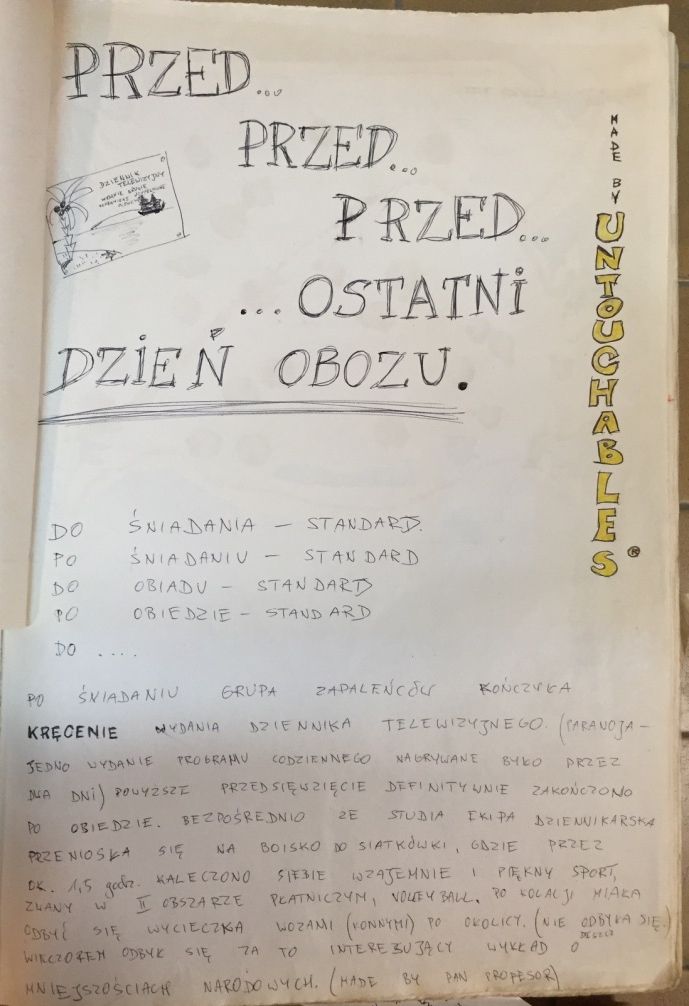 PRZED...
PRZED...
PRZED...
...OSTATNI
DZIEŃ OBOZU.
DZIENNIK
TELEWIZYJNY
MADE BY UNTOUCHABLES ®
DO ŚNIADANIA – STANDARD.
PO ŚNIADANIU – STANDARD
DO OBIADU – STANDARD
PO OBIEDZIE – STANDARD
DO ....
PO ŚNIADANIU GRUPA ZAPALEŃCÓW KOŃCZYŁA
KRĘCENIE WYDANIA DZIENNIKA TELEWIZYJNEGO. (PARANOJA –
JEDNO WYDANIE PROGRAMU CODZIENNEGO NAGRYWANE BYŁO PRZEZ
DWA DNI) POWYŻSZE PRZEDSIĘWZIĘCIE DEFINITYWNIE ZAKOŃCZONO
PO OBIEDZIE. BEZPOŚREDNIO ZE STUDIA EKIPA DZIENNIKARSKA
PRZENIOSŁA SIĘ NA BOISKO DO SIATKÓWKI, GDZIE PRZEZ
OK. 1,5 godz. KALECZONO SIEBIE WZAJEMNIE I PIĘKNY SPORT,
ZWANY W II OBSZARZE PŁATNICZYM, VOLLEYBALL. PO KOLACJI MIAŁA
ODBYĆ SIĘ WYCIECZKA WOZAMI (KONNYMI) PO OKOLICY. (NIE ODBYŁA SIĘ.)
DESZCZ
WIECZOREM ODBYŁ SIĘ ZA TO INTERESUJĄCY WYKŁAD O
MNIEJSZOŚCIACH NARODOWYCH. (MADE BY PAN PROFESOR)